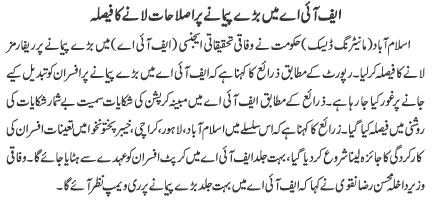 ایف آئی اے میں بڑے پیمانے پر اصلاحات لانے کا فیصلہ
اسلام آباد (مانیٹرنگ ڈیسک) حکومت نے وفاقی تحقیقاتی ایجنسی (ایف آئی اے) میں بڑے پیمانے پر ریفارمز
لانے کا فیصلہ کر لیا۔ رپورٹ کے مطابق ذرائع کا کہنا ہے کہ ایف آئی اے میں بڑے پیمانے پر افسران کو تبدیل کیے
جانے پر غور کیا جا رہا ہے۔ ذرائع کے مطابق ایف آئی اے میں مبینہ کرپشن کی شکایات سمیت بے شمار شکایات کی
روشنی میں فیصلہ کیا گیا۔ ذرائع کا کہنا ہے کہ اس سلسلے میں اسلام آباد، لاہور، کراچی، خیبر پختونخوا میں تعینات افسران کی
کارکردگی کا جائزہ لینا شروع کر دیا گیا، بہت جلد ایف آئی اے میں کرپٹ افسران کو عہدے سے ہٹایا جائے گا۔ وفاقی
وزیر داخلہ محسن رضا نقوی نے کہا کہ ایف آئی اے میں بہت جلد بڑے پیمانے پر ری ویمپ نظر آئے گا۔